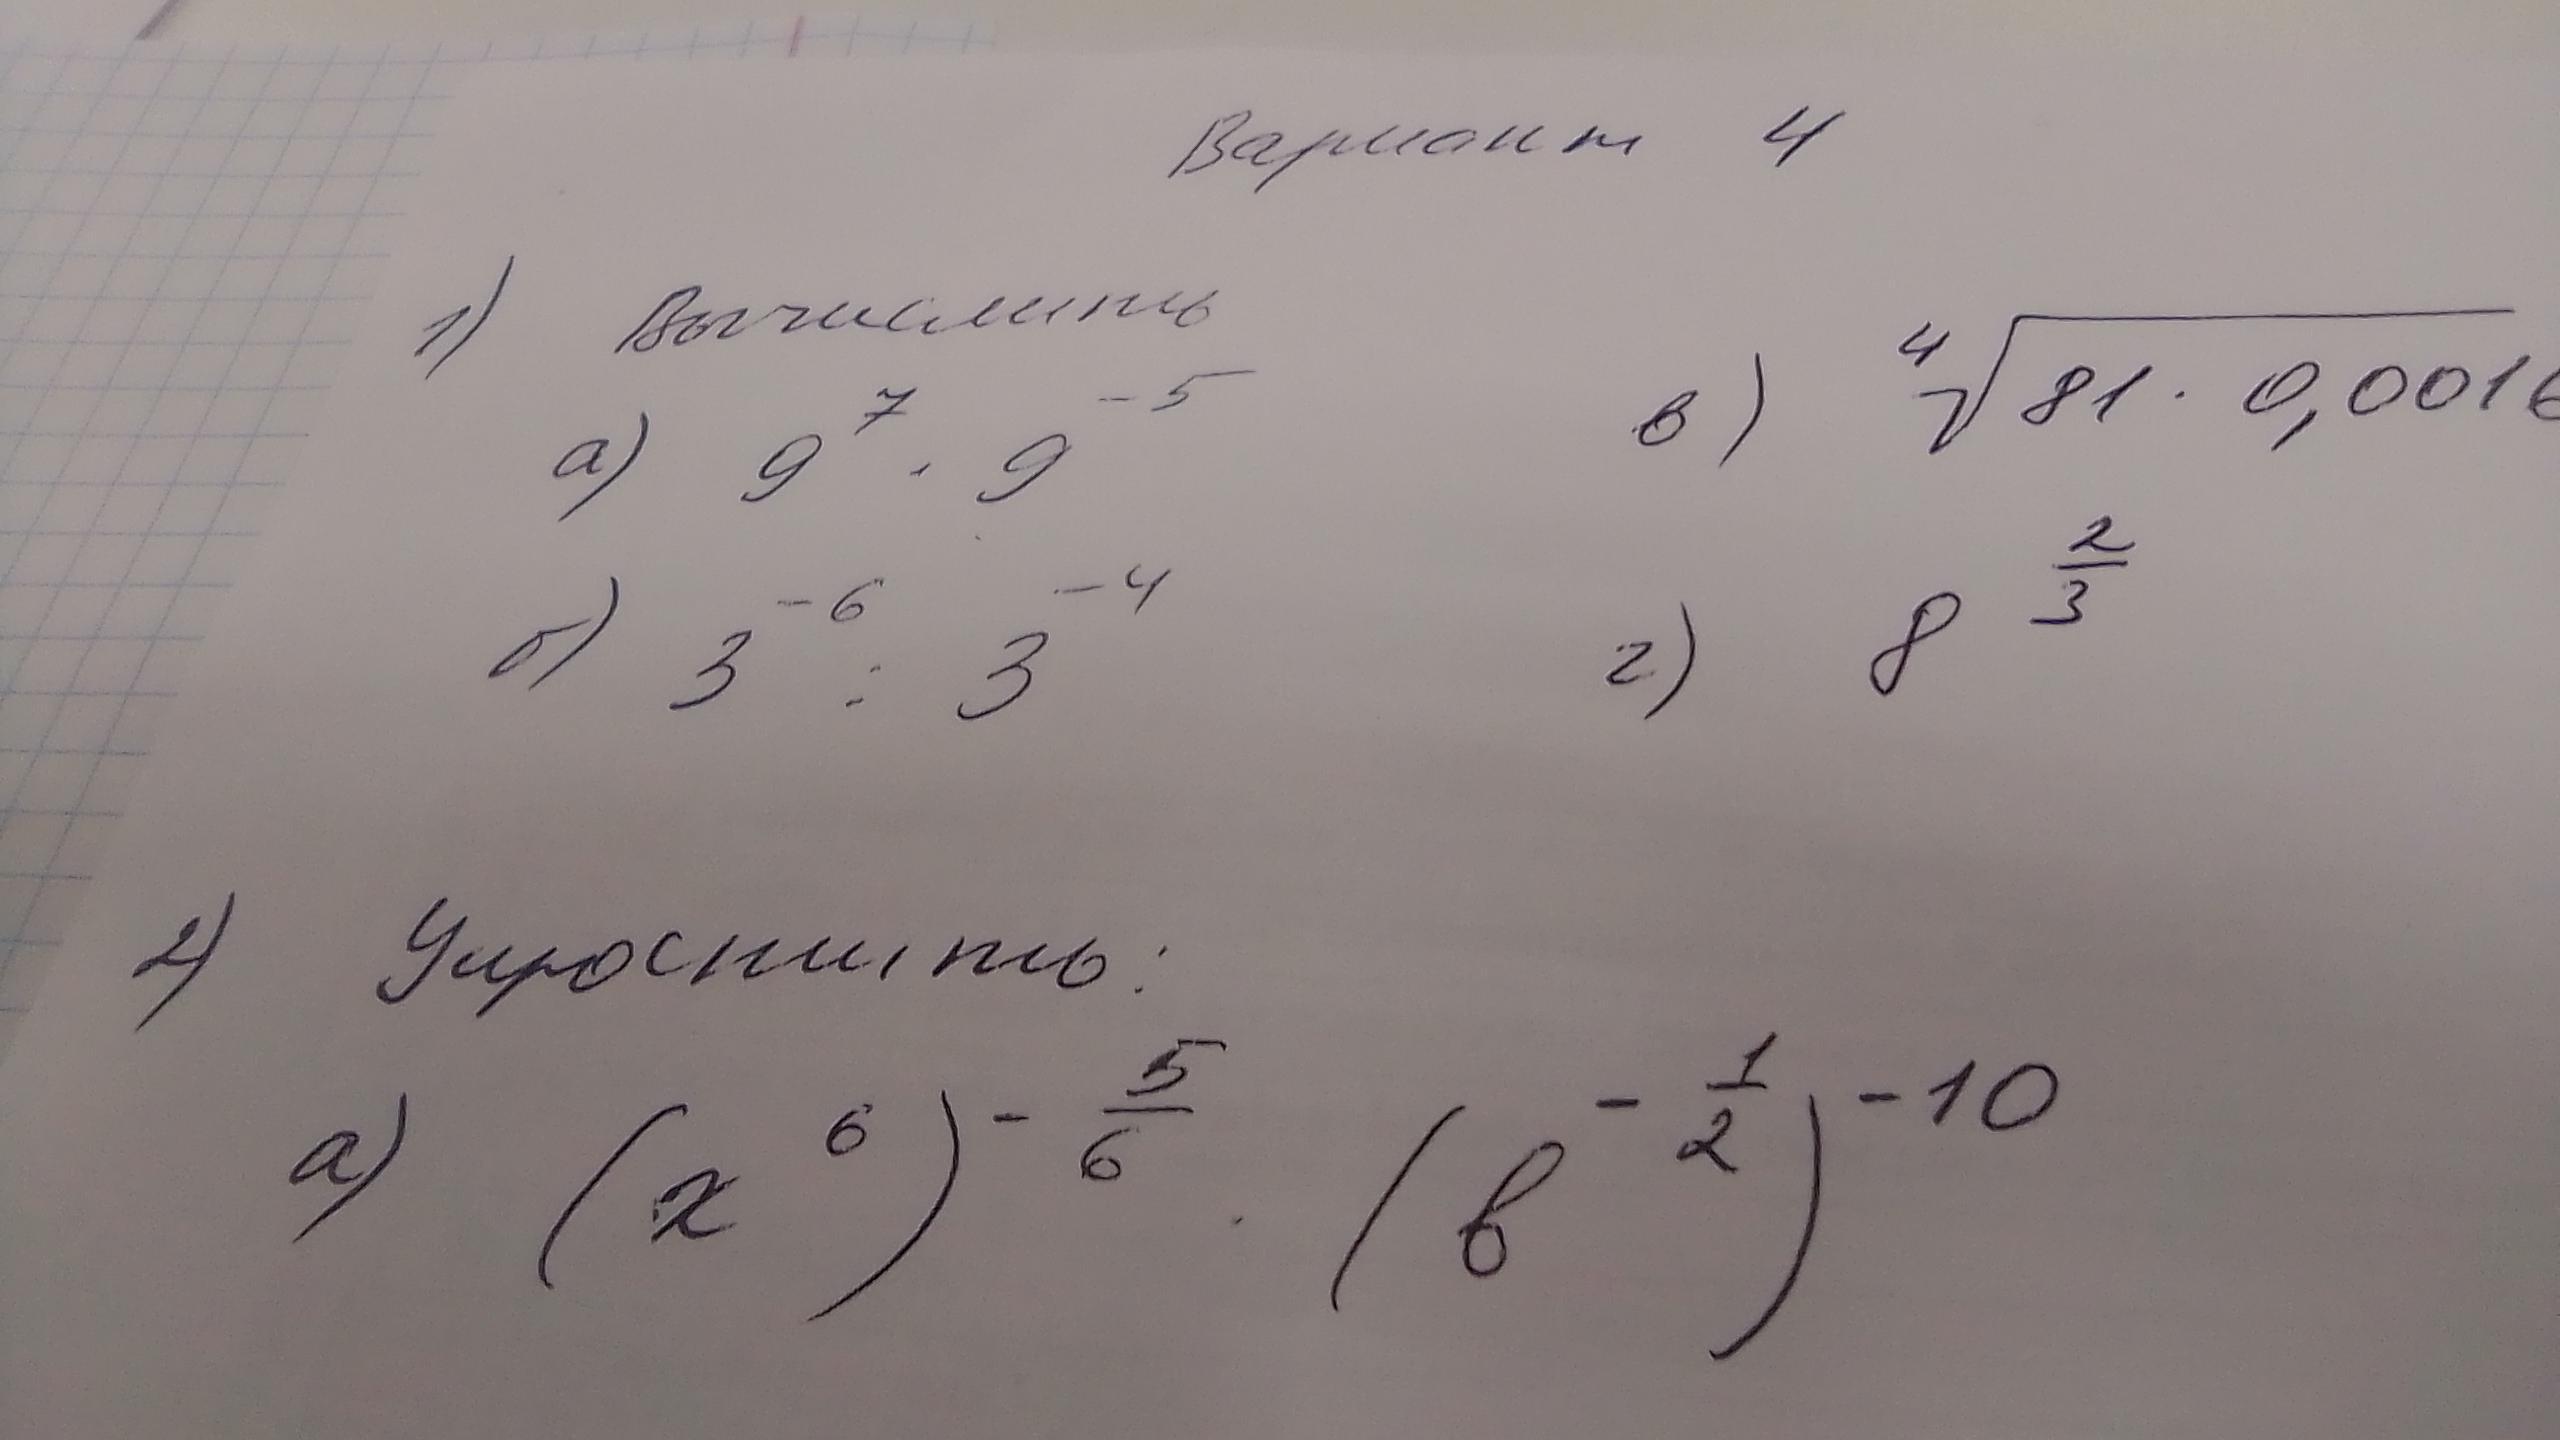 Вариант 4
1) Вычислить
а) 9^7 · 9^{-5}
б) 3^{-6} : 3^{-4}
в) \sqrt[4]{81 · 0,0016}
г) 8^{\frac{2}{3}}
2) Упростить:
а) (x^6)^{-\frac{5}{6}} · (в^{-\frac{1}{2}})^{-10}